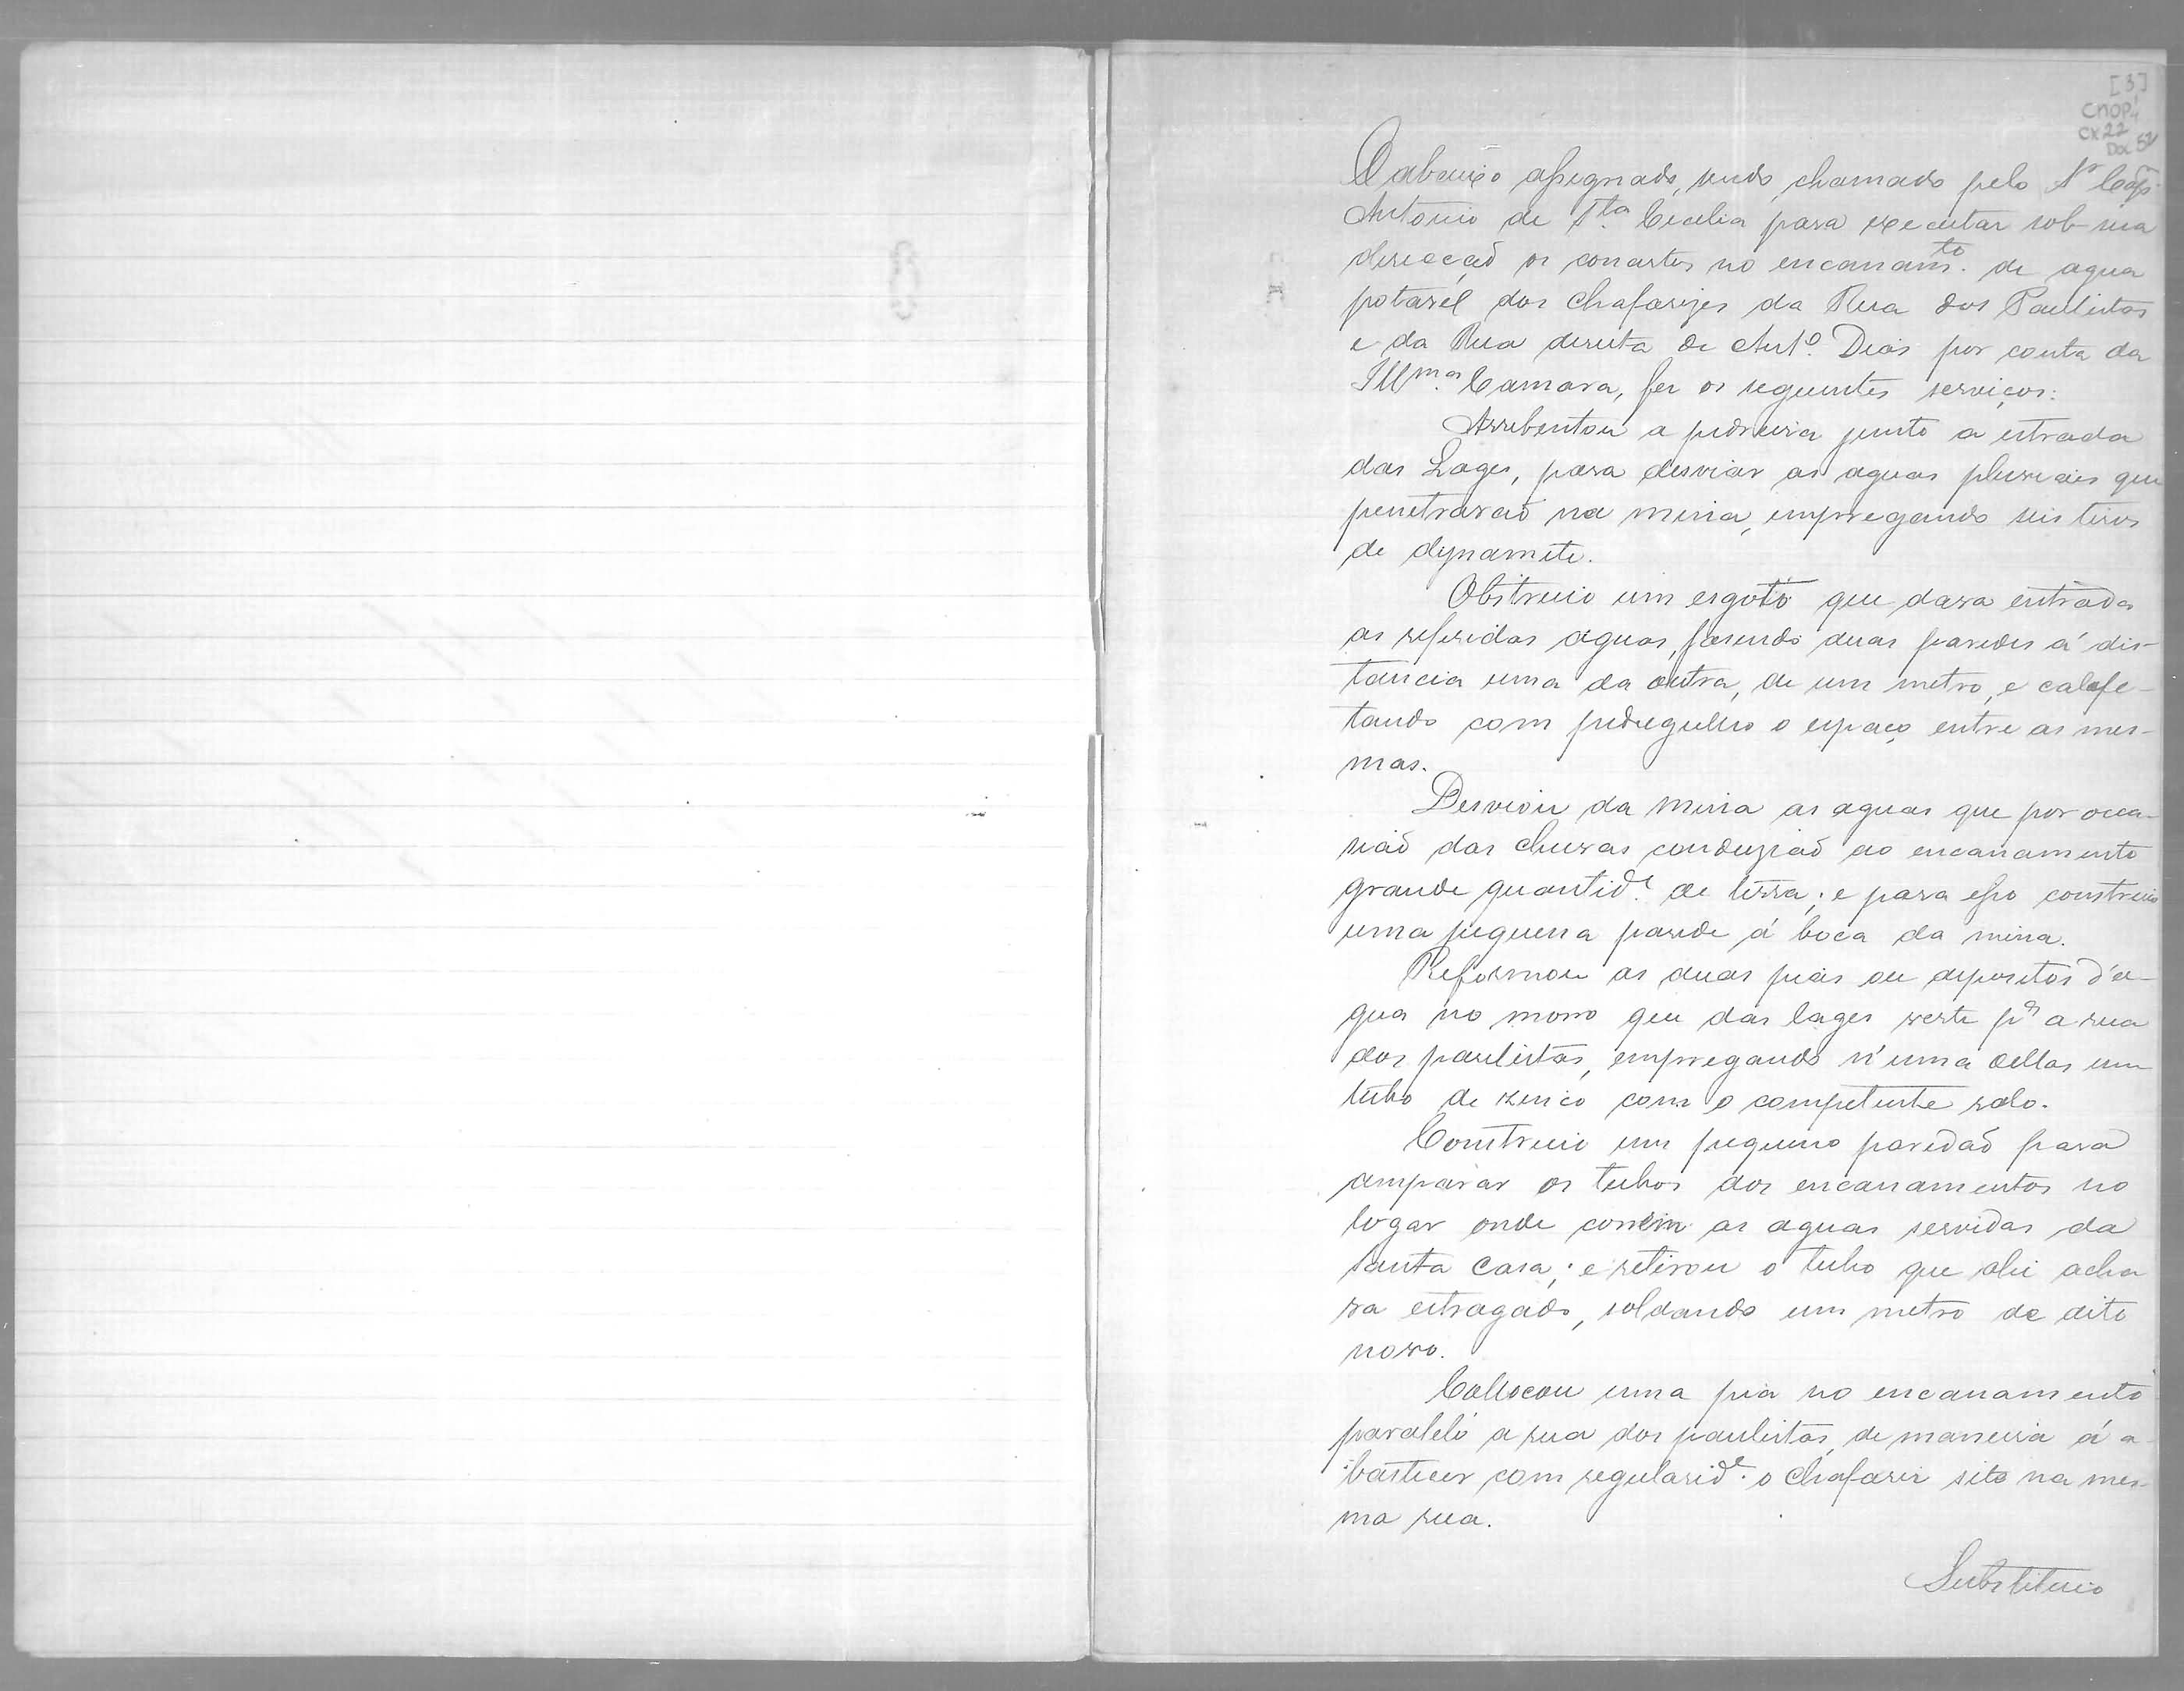 [3]
CMOP
CX 22
Doc 52
O abaixo assignado, sendo chamado pelo Sr. Capm.
Antonio de Sta. Cecilia para executar sob sua
direcção os concertos no encanamto. de agua
potavel dos chafarizes da Rua dos Paulistas
e da Rua direita de Anto. Dias por conta da
Illma. Camara, fez os seguintes serviços:
Arrebentou a pedreira junto a estrada
das Lages, para desviar as aguas pluviais que
penetravaõ na mina, empregando seis tiros
de dynamite.
Obstruio um esgoto que dava entrada
as referidas aguas, fasendo duas paredes á dis-
tancia uma da outra, de um metro, e calafe-
tando com pedregulho o espaço entre as mes-
mas.
Desviou da mina as aguas que por occa-
siaõ das chuvas conduziaõ ao encanamento
grande quantide. de terra; e para esso construio
uma pequena parede á boca da mina.
Reformou as duas pias ou depositos d'a-
gua no morro que das lages verte pa. a rua
dos paulistas, empregando n'uma dellas um
tubo de zinco com o competente ralo.
Construio um pequeno paredaõ para
amparar os tubos dos encanamentos no
logar onde correm as aguas servidas da
Santa Casa; e retirou o tubo que ahi acha
va estragado, soldando um metro de dito
novo.
Collocou uma pia no encanamento
paralelo a rua dos paulistas, de maneira á a-
bastecer com regularide. o chafariz sito na mes-
ma rua.
Substituio